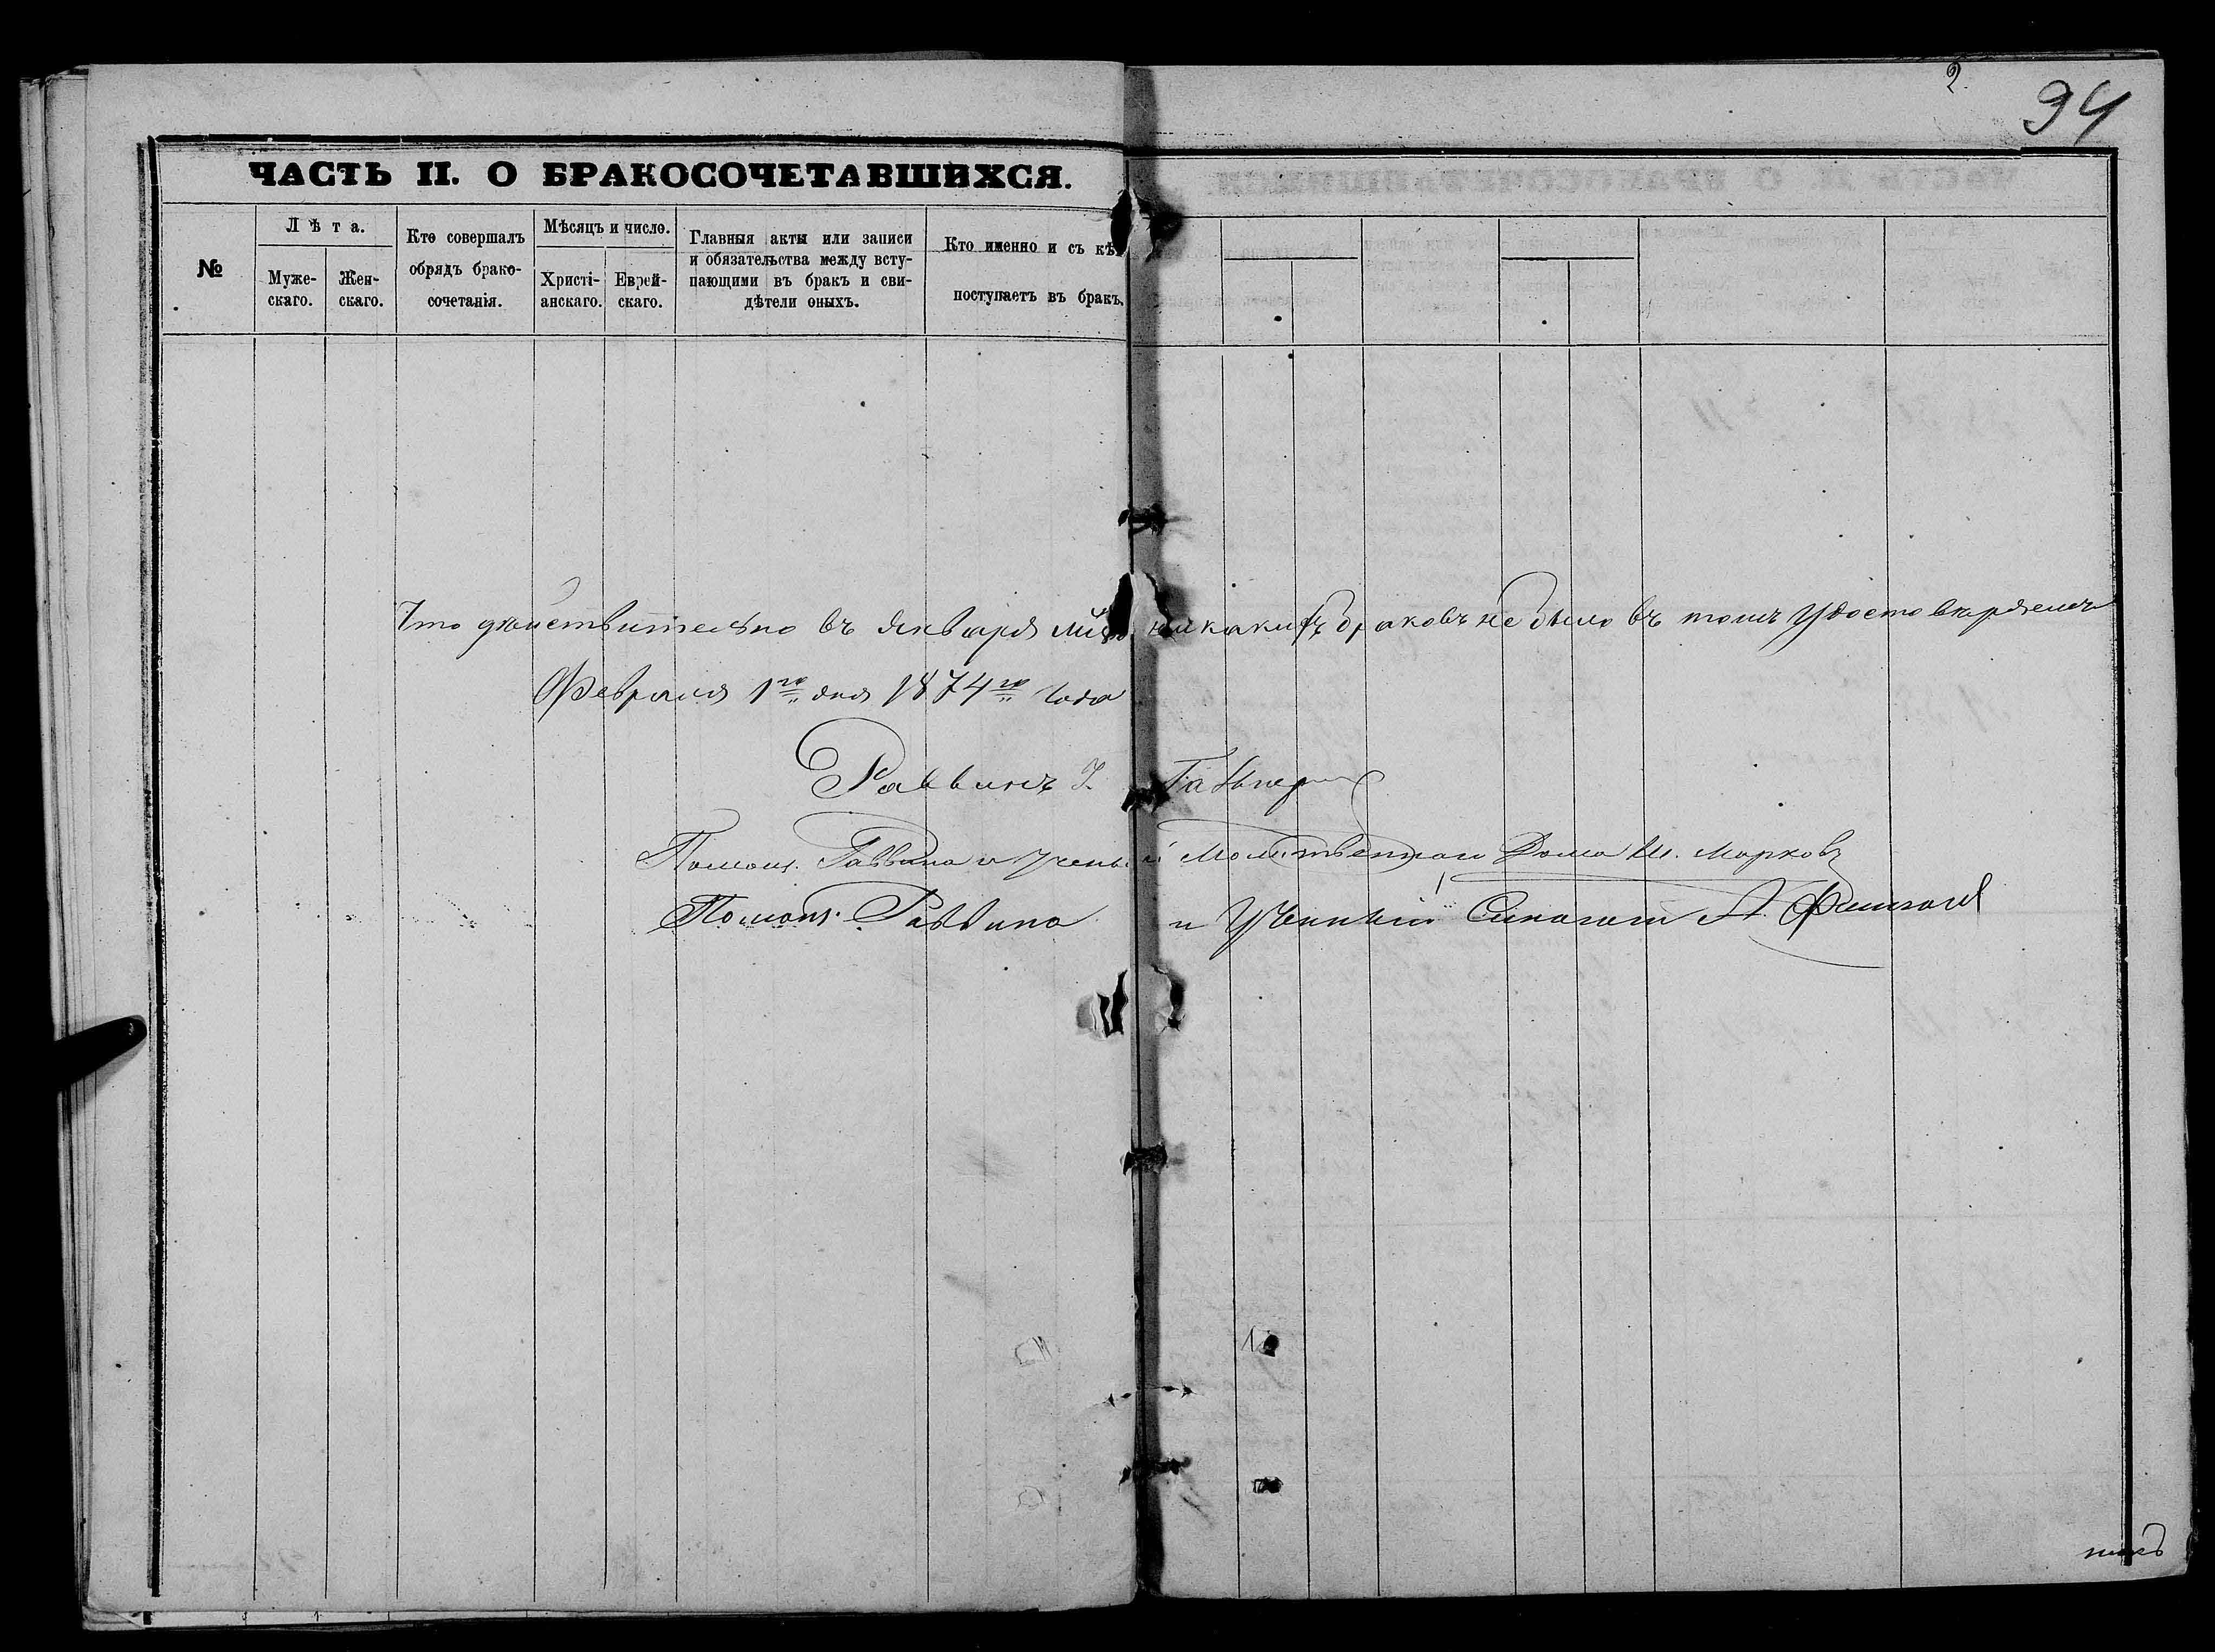 2.
94
ЧАСТЬ II. О БРАКОСОЧЕТАВШИХСЯ.
№
Лѣта.
Муже-
скаго.
Жен-
скаго.
Кто совершалъ
обрядъ брако-
сочетанія.
Мѣсяцъ и число.
Христі-
анскаго.
Еврей-
скаго.
Главныя акты или записи
и обязательства между всту-
пающими въ бракъ и сви-
дѣтели оныхъ.
Кто именно и съ кѣ
поступаетъ въ бракъ.
Что действительно въ января никакихъ браковъ не было въ томъ удостоверяемъ
Февраля 1го дня 1874го года
Раввинъ
Помощ. Раввина и Ученый Молитвенная Дома М. Марковъ
Помощ. Раввина и Ученый Синагоги А.